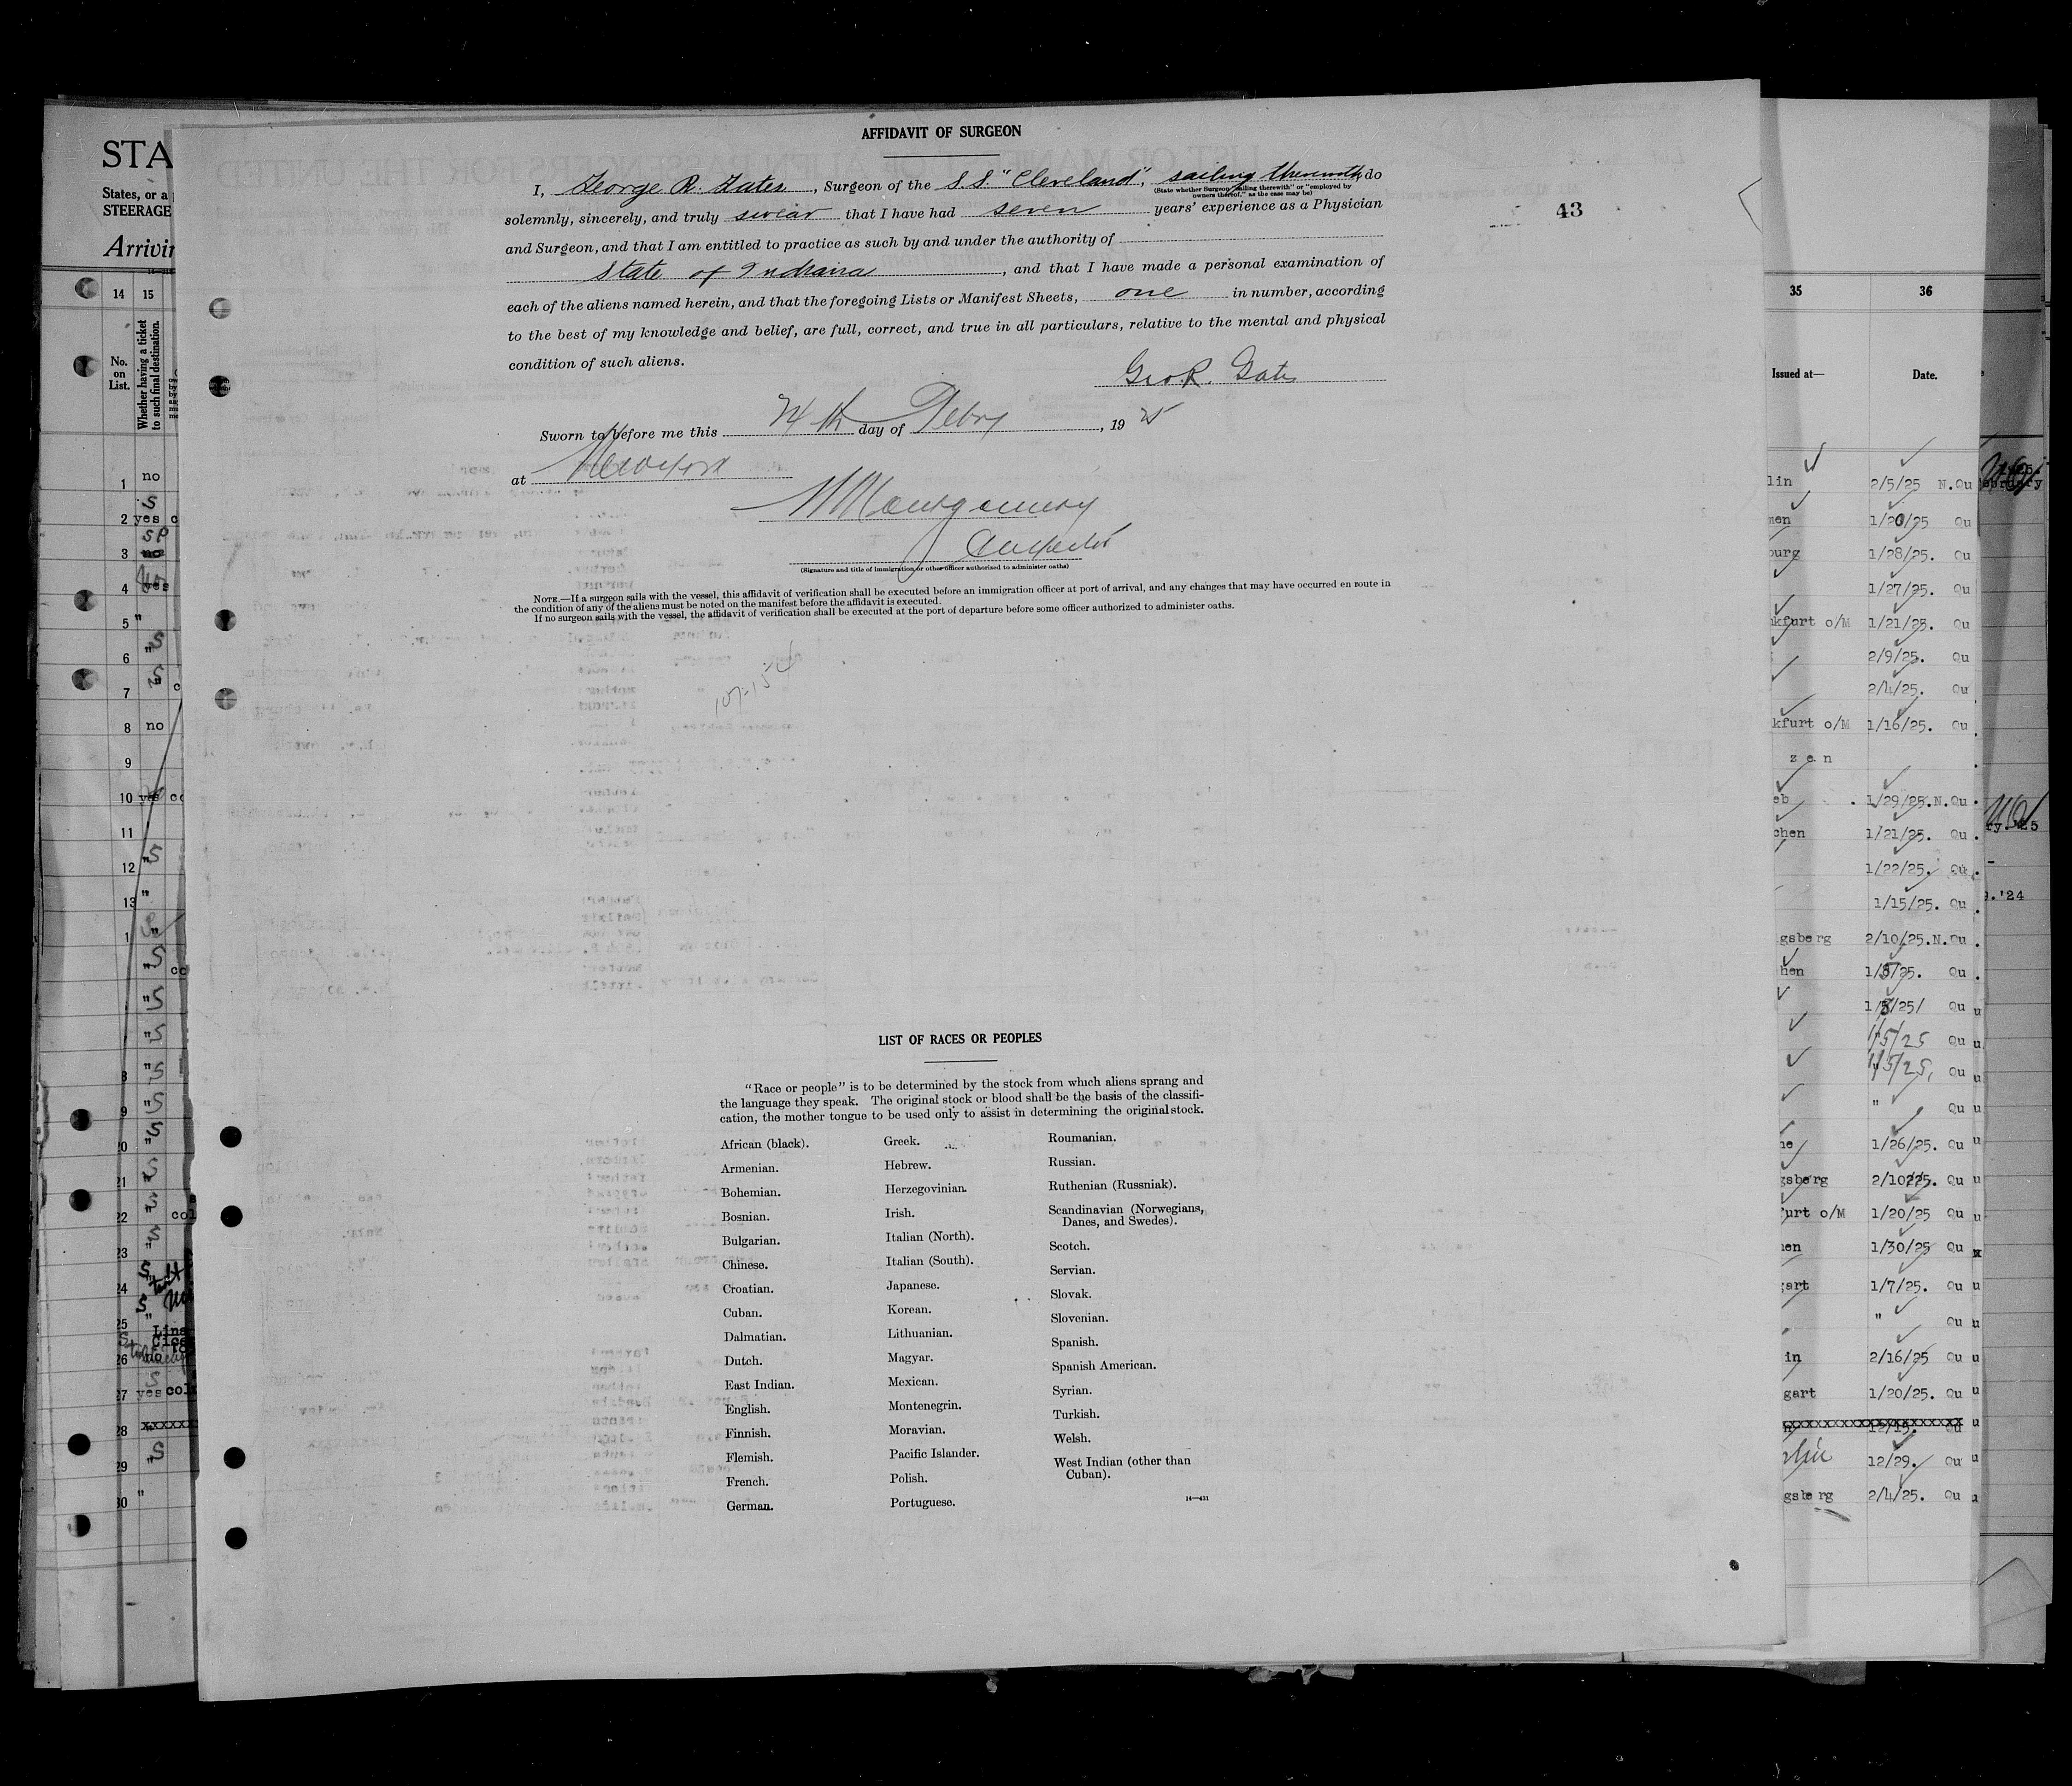 AFFIDAVIT OF SURGEON
I, George R. Gates, Surgeon of the S.S. "Cleveland", sailing therewith, do
(State whether Surgeon "sailing therewith" or "employed by
owners thereof," as the case may be)
solemnly, sincerely, and truly swear that I have had seven years' experience as a Physician
43
and Surgeon, and that I am entitled to practice as such by and under the authority of
State of Indiana, and that I have made a personal examination of
each of the aliens named herein, and that the foregoing Lists or Manifest Sheets, one in number, according
to the best of my knowledge and belief, are full, correct, and true in all particulars, relative to the mental and physical
condition of such aliens.
Geo. R. Gates
Sworn to before me this 24th day of Febry, 1925
at New York
Montgomery
(Signature and title of immigration or other officer authorized to administer oaths)
NOTE.—If a surgeon sails with the vessel, this affidavit of verification shall be executed before an immigration officer at port of arrival, and any changes that may have occurred en route in
the condition of any of the aliens must be noted on the manifest before the affidavit is executed.
If no surgeon sails with the vessel, the affidavit of verification shall be executed at the port of departure before some officer authorized to administer oaths.
107-154
LIST OF RACES OR PEOPLES
"Race or people" is to be determined by the stock from which aliens sprang and
the language they speak. The original stock or blood shall be the basis of the classifi-
cation, the mother tongue to be used only to assist in determining the original stock.
African (black).
Armenian.
Bohemian.
Bosnian.
Bulgarian.
Chinese.
Croatian.
Cuban.
Dalmatian.
Dutch.
East Indian.
English.
Finnish.
Flemish.
French.
German.
Greek.
Hebrew.
Herzegovinian.
Irish.
Italian (North).
Italian (South).
Japanese.
Korean.
Lithuanian.
Magyar.
Mexican.
Montenegrin.
Moravian.
Pacific Islander.
Polish.
Portuguese.
Roumanian.
Russian.
Ruthenian (Russniak).
Scandinavian (Norwegians,
Danes, and Swedes).
Scotch.
Servian.
Slovak.
Slovenian.
Spanish.
Spanish American.
Syrian.
Turkish.
Welsh.
West Indian (other than
Cuban).
14—431
STA
States, or a
STEERAGE
Arrivin
14 15
No.
on
List.
Whether having a ticket
to such final destination.
1 no
2 yes
3
4 yes
5 "
6 "
7 "
8 no
9
10 yes
11
12 "
13 "
21
22 col
23
24
25
26 no
27 yes col
28
29
30 "
35 36
Issued at— Date.
lin 2/5/25 N.Qu
men 1/20/25 Qu
burg 1/28/25. Qu
1/27/25. Qu
kfurt o/M 1/21/25. Qu
2/9/25. Qu
2/4/25. Qu
kfurt o/M 1/16/25. Qu
z e n
eb 1/29/25.N.Qu
chen 1/21/25. Qu
1/22/25. Qu
1/15/25. Qu
gsberg 2/10/25.N.Qu
hen 1/5/25. Qu
1/5/25/ Qu
1/5/25 Qu
1/5/25, Qu
" Qu
ne 1/26/25. Qu
gsberg 2/10/25. Qu
furt o/M 1/20/25 Qu
en 1/30/25 Qu
gart 1/7/25. Qu
" Qu
in 2/16/25 Qu
gart 1/20/25. Qu
12/15. Qu
12/29. Qu
gsberg 2/4/25. Qu
'24